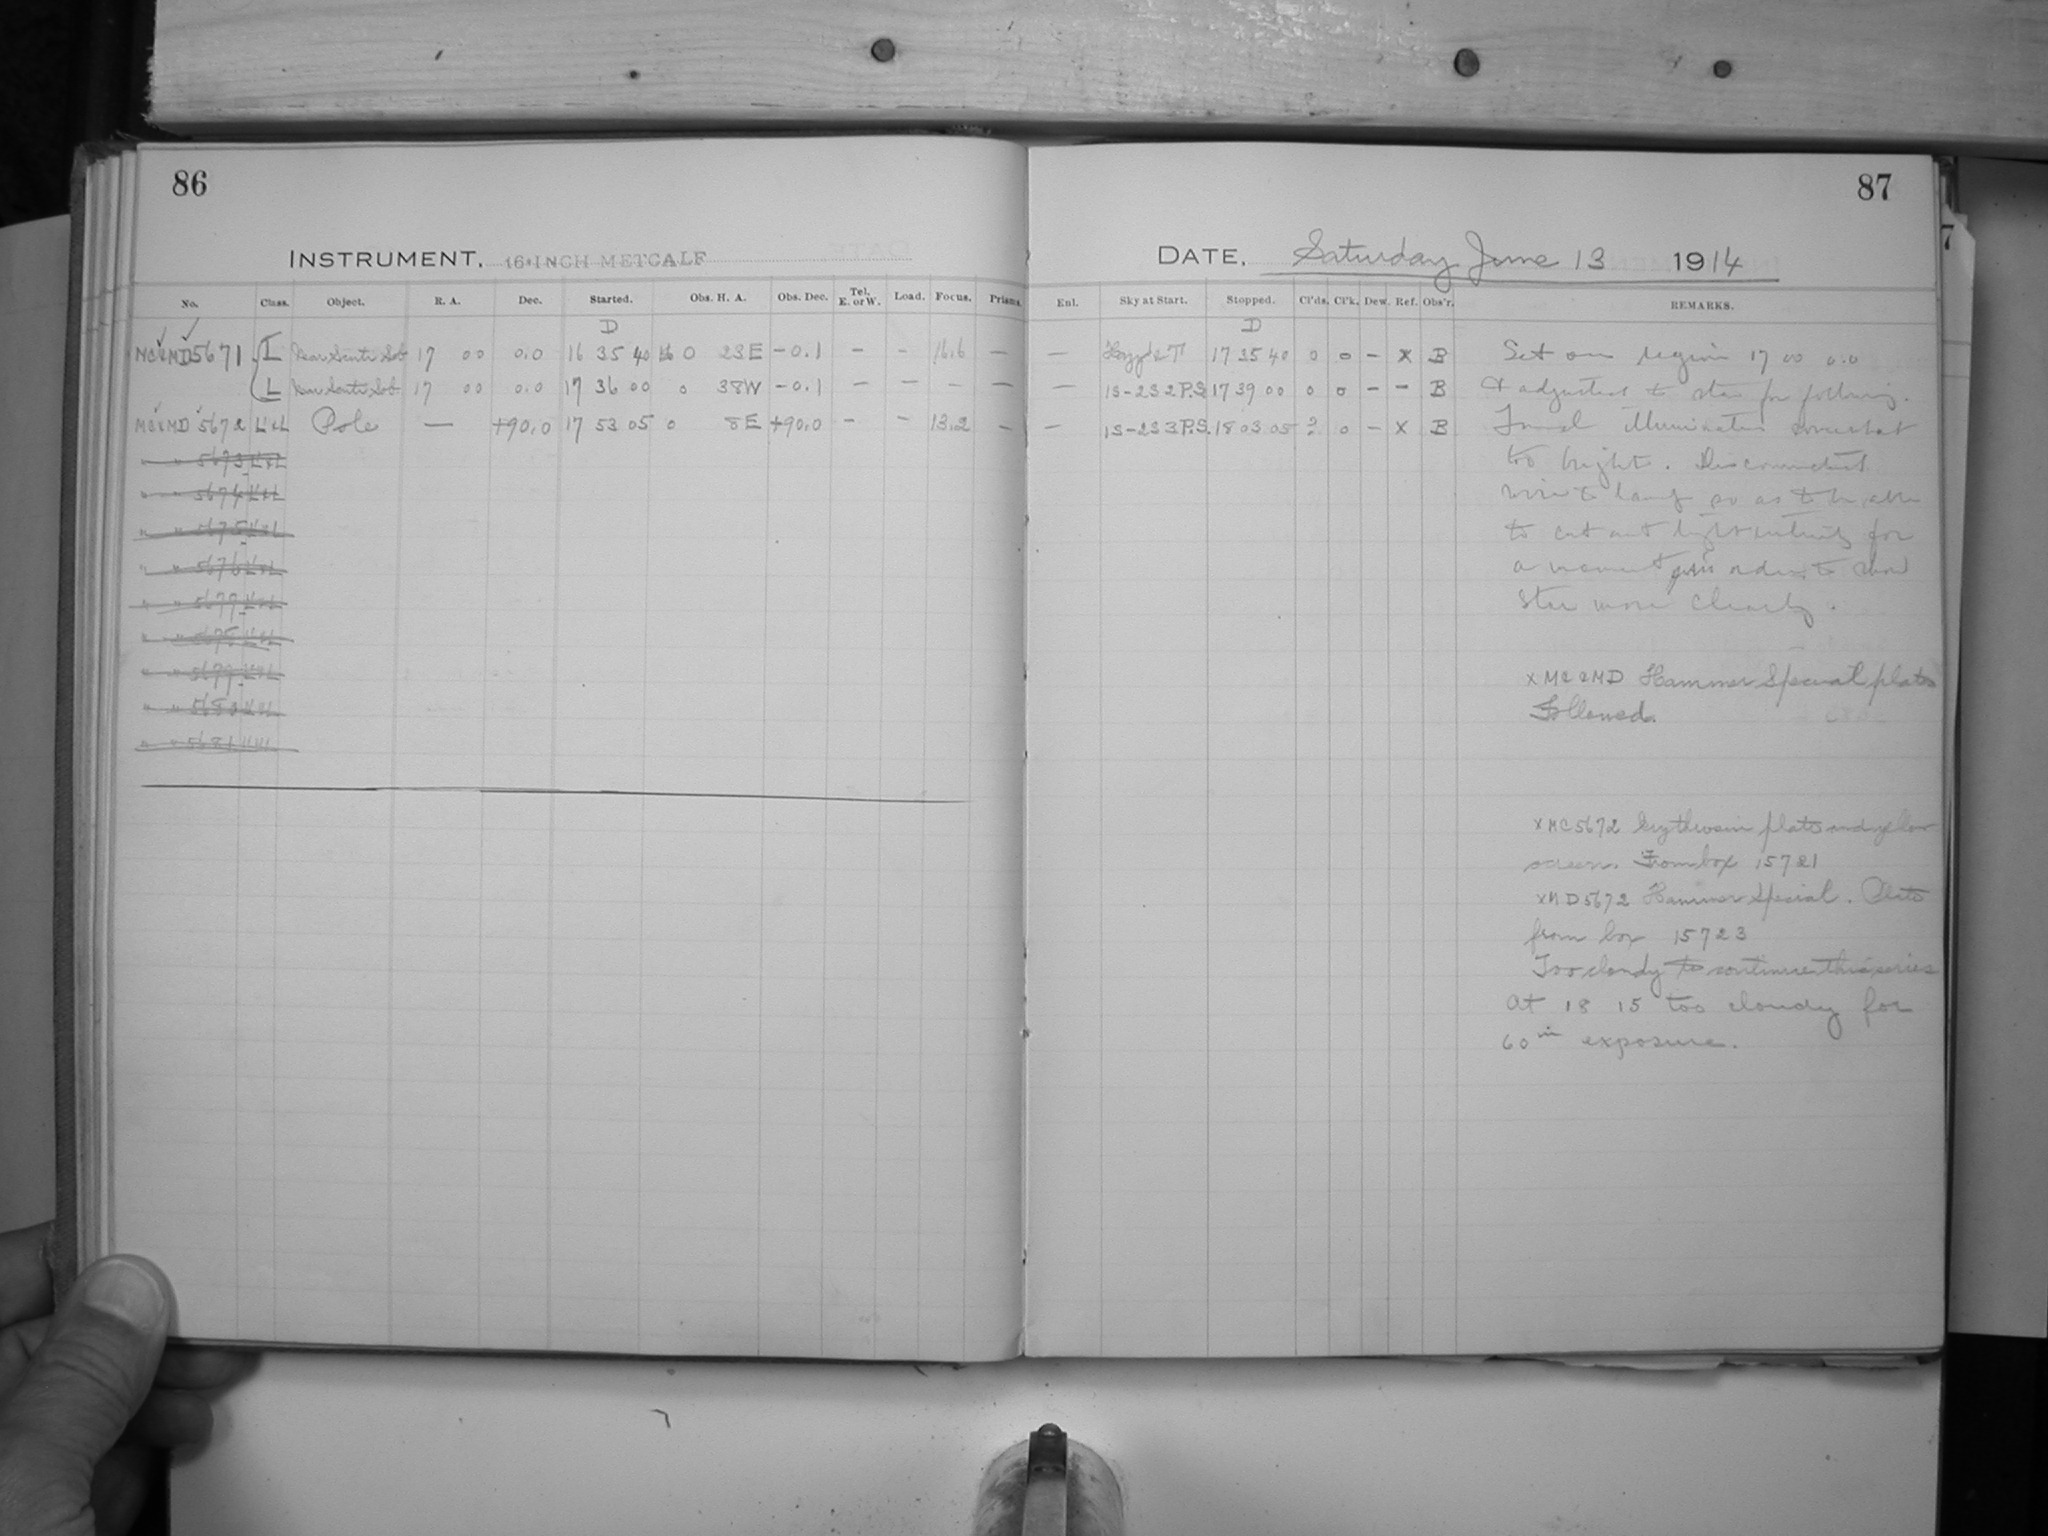 86
87
INSTRUMENT, 16-INCH METCALF
DATE, Saturday June 13 1914
No. Class. Object. R. A. Dec. Started. Obs. H. A. Obs. Dec. Tel. E. or W. Load. Focus. Prisms.
Enl. Sky at Start. Stopped. Cl'ds. Cl'k. Dew. Ref. Obs'r. REMARKS.
D
D
MC&MD5671 I 17 00 0.0 16 35 40 0 23E -0.1 - - 16.6 -
- 17 35 40 0 0 - X B Set on region 17 00 0.0
L 17 00 0.0 17 36 00 0 38W -0.1 - - - -
- 1S-232P.S. 17 39 00 0 0 - - B & adjusted to star for following.
MC&MD 5672 L&L Pole - +90.0 17 53 05 0 8E +90.0 - - 13.2 -
- 1S-233P.S. 18 03 05 ? 0 - X B Found illumination somewhat
" " 5673 L&L
too bright. Disconnected
" " 5674 L&L
wire to lamp so as to be able
" " 5675 L&L
to cut out light entirely for
" " 5676 L&L
a moment in order to
" " 5677 L&L
see more clearly.
" " 5678 L&L
" " 5679 L&L
X MC&MD Hammer Special plates
" " 5680 L&L
Followed.
" " 5681 L&L
X MC5672 Erythrosin plate and yellow
screen. From box 15721
X MD5672 Hammer Special. Plate
from box 15723
Too cloudy to continue this series
At 18 15 too cloudy for
60m exposure.